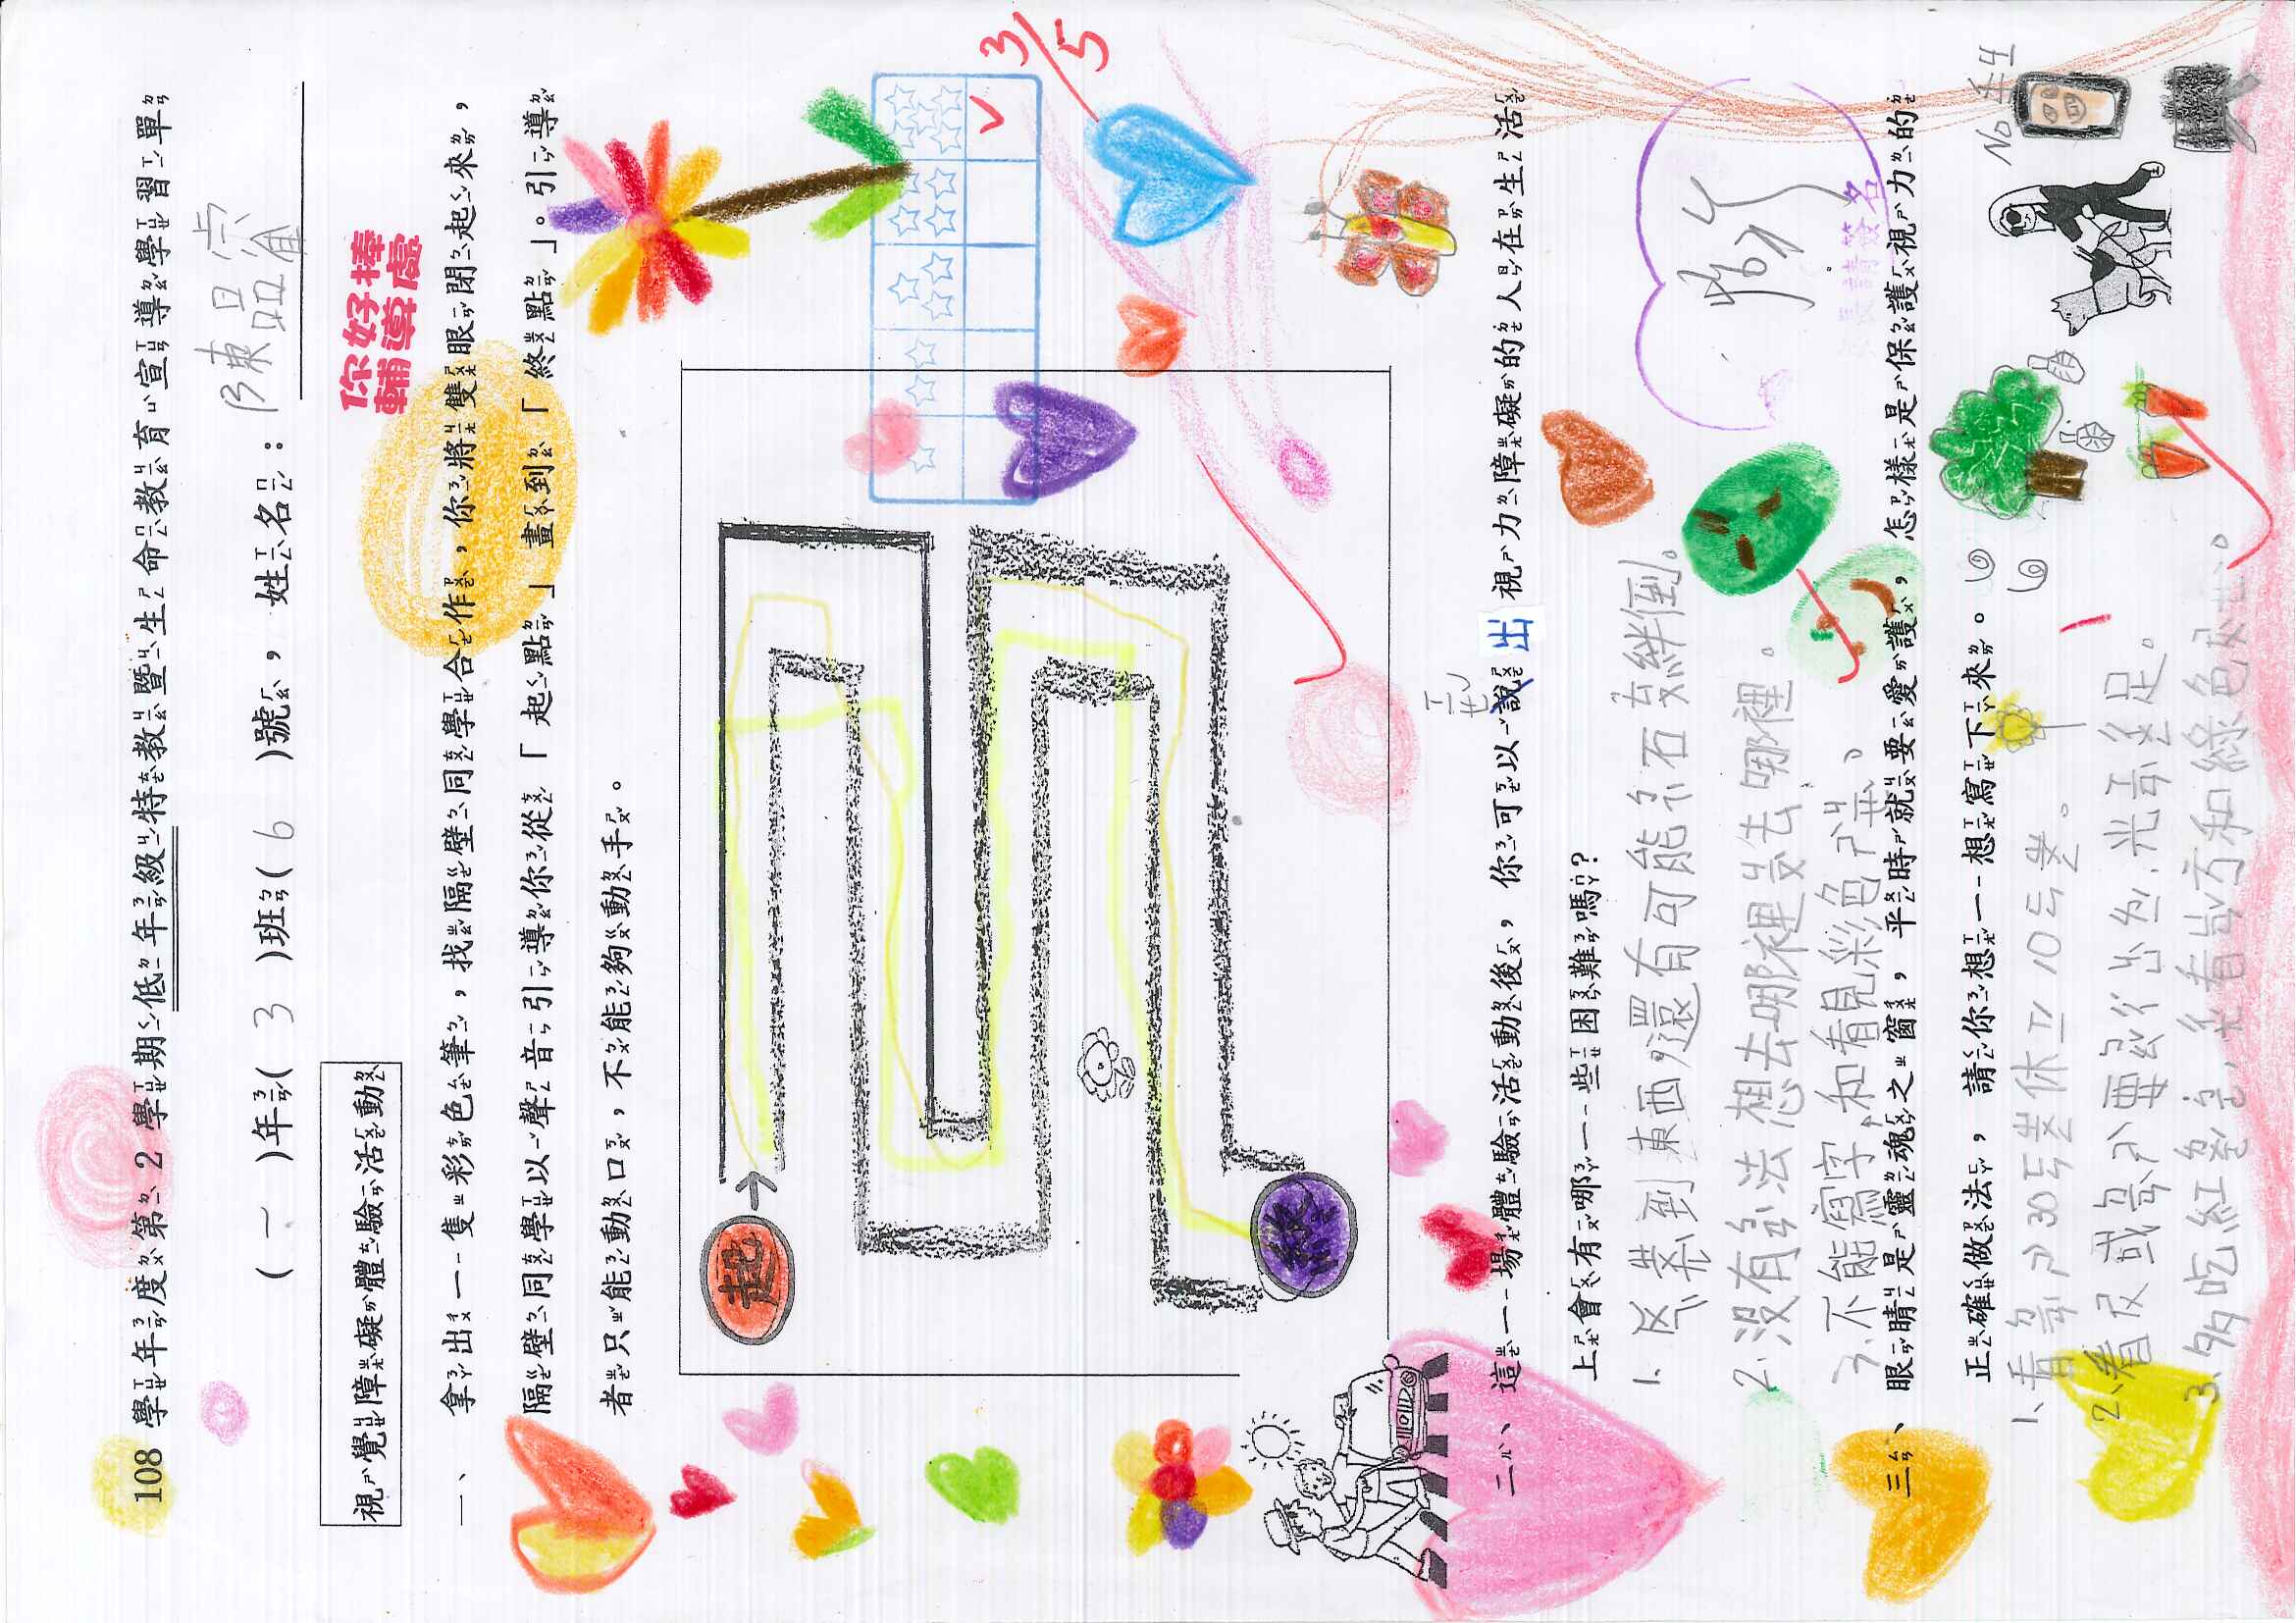 108 學年度第 2 學期低年級特教暨生命教育宣導學習單
(一)年(3)班(6)號，姓名：陳品
你好棒
輔導處
視覺障礙體驗活動
一、拿出一隻彩色筆，找隔壁同學合作，你將雙眼閉起來，
隔壁同學以聲音引導你從「起點」畫到「終點」。引導
者只能動口，不能夠動手。
3/5
起
終
二、這一場體驗活動後，你可以說出視力障礙的人在生活
上會有哪一些困難嗎？
1、ㄆㄥ到東西,還有可能ㄅㄟ石ㄊㄡ絆倒。
2、沒有ㄅㄢ法想去哪裡ㄐㄧㄡ去哪裡。
3、不能寫字,和看見彩色ㄕˋㄐㄧㄝ。
家長請簽名
三、眼睛是靈魂之窗，平時就要愛護，怎樣是保護視力的
正確做法，請你想一想寫下來。
No 44
1、看ㄕㄨ30ㄈㄣ ㄓㄨㄥ休ㄒㄧ10ㄈㄣ ㄓㄨㄥ。
2、看
3、多吃紅